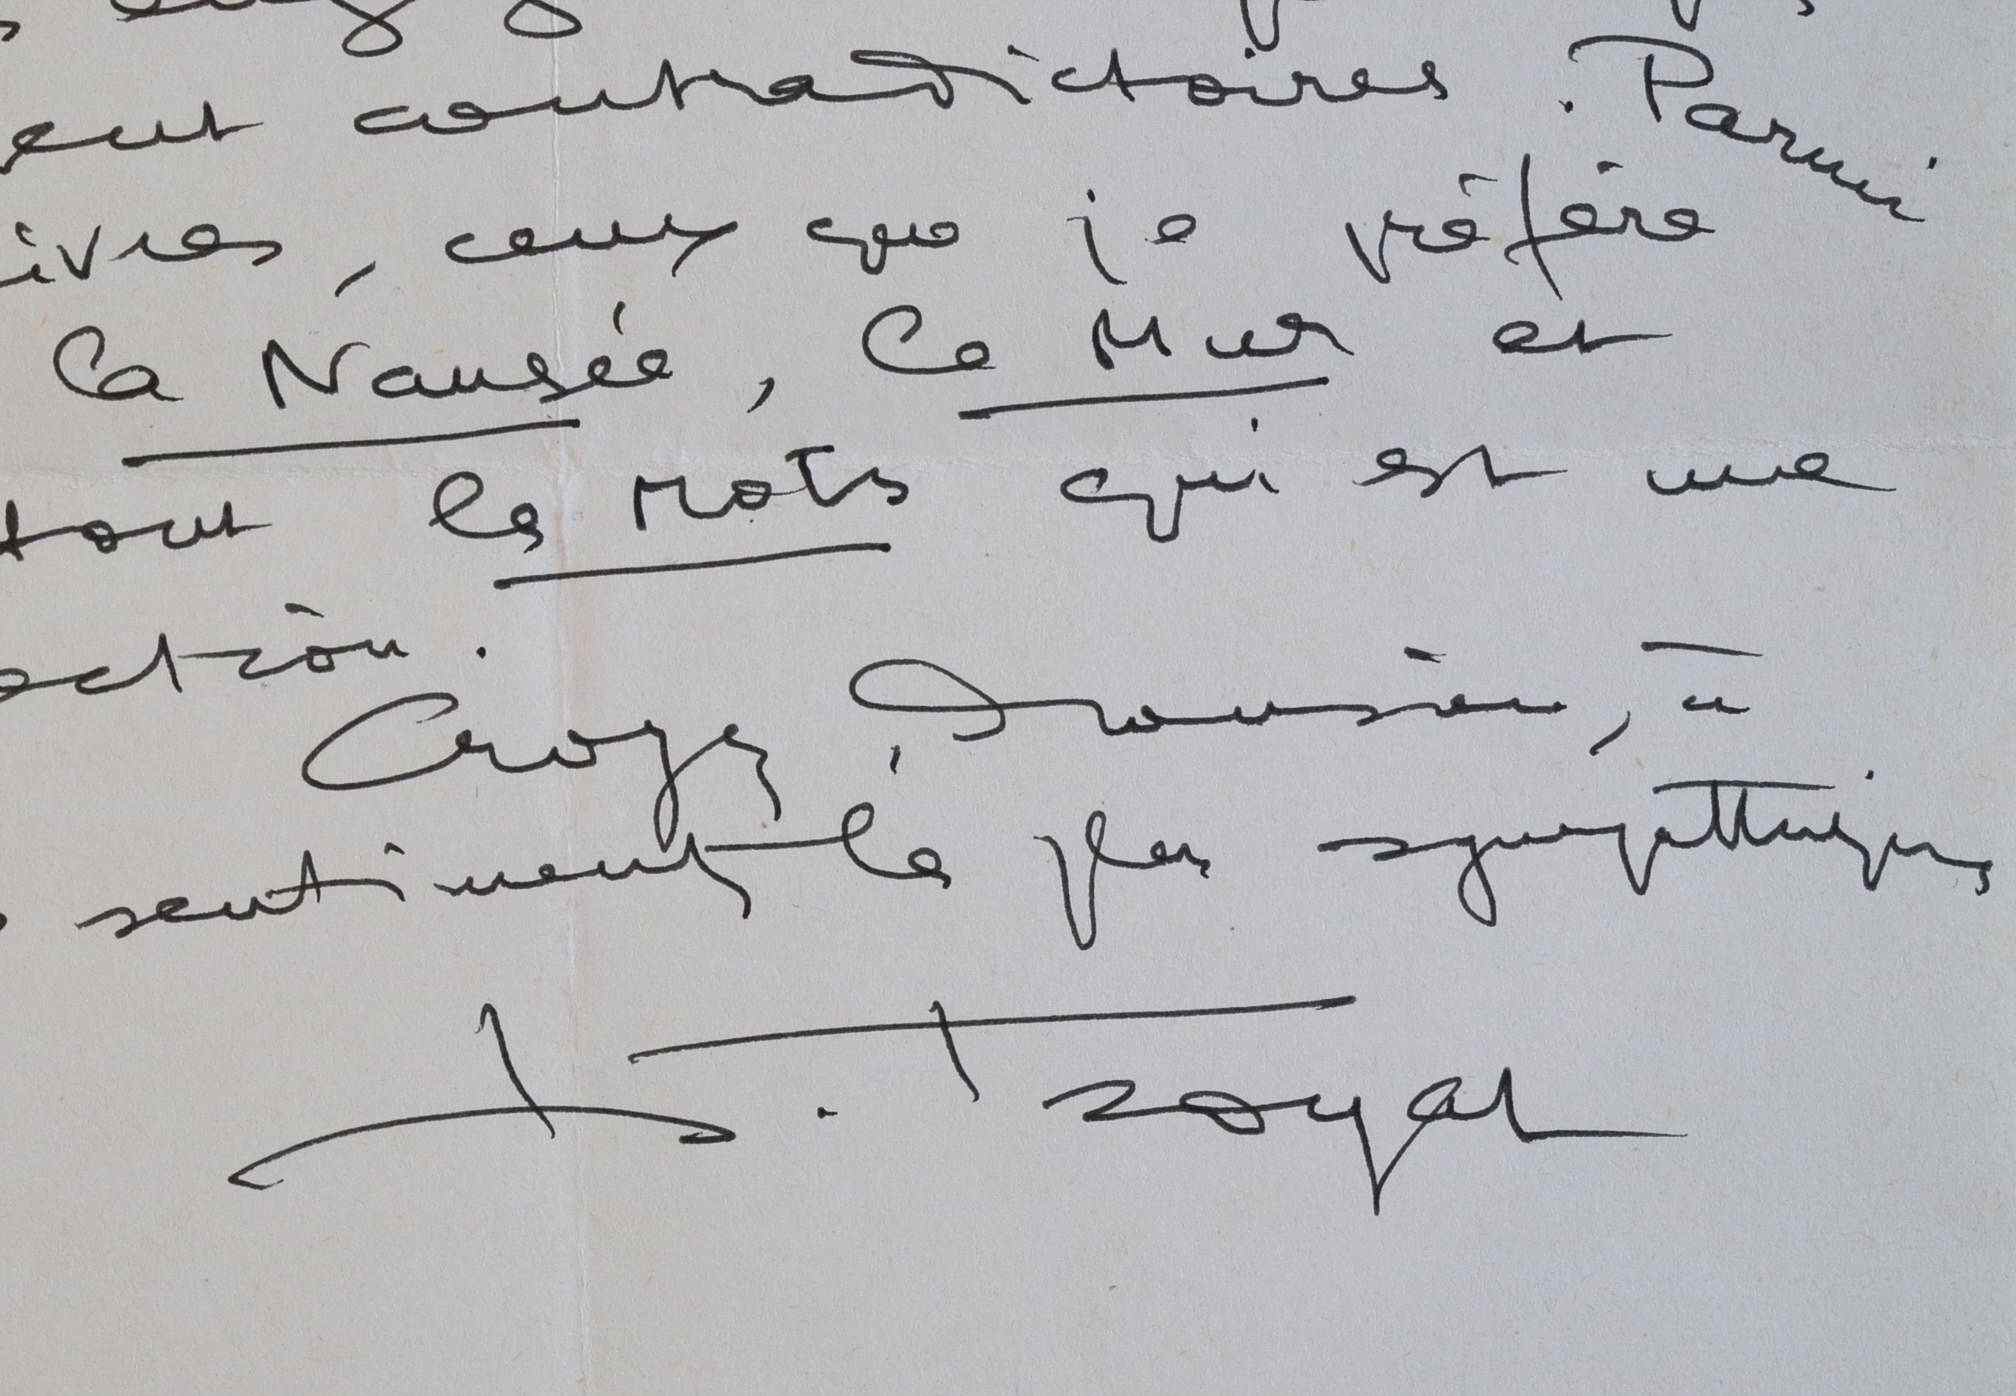 ent contradictoires. Parmi
ivres, ceux que je préfère
la Nausée, le Mur et
tout les Mots qui est une
ection.
Croyez, Monsieur, à
sentiments les plus sympathiques
H. Troyat